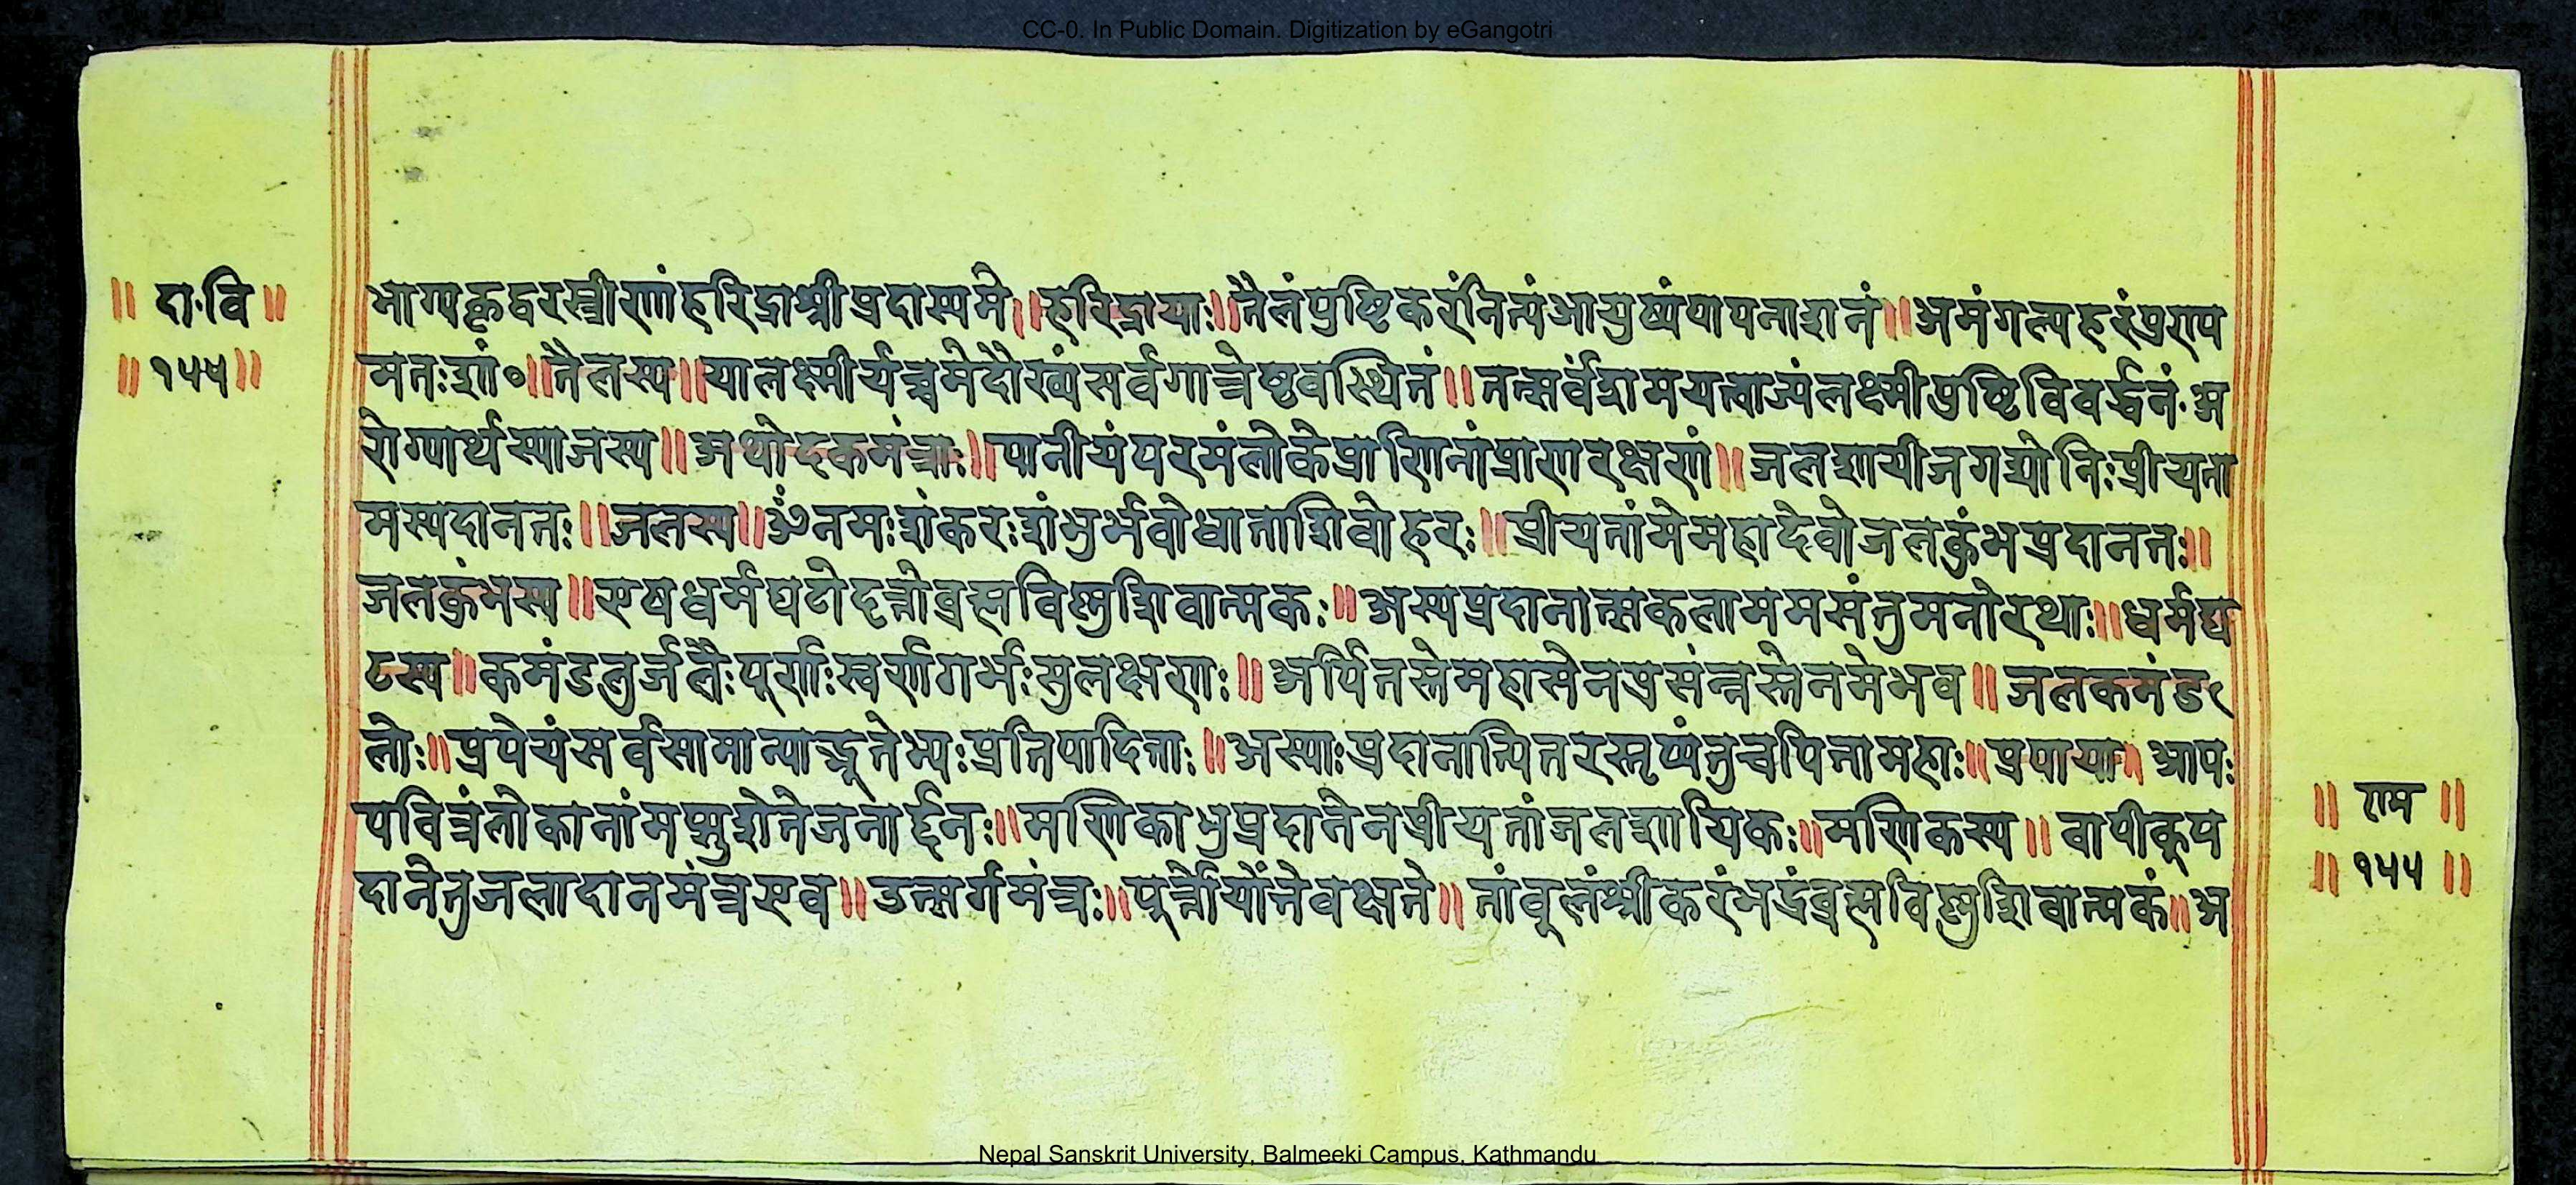 CC-0. In Public Domain. Digitization by eGangotri
॥ दा·वि ॥
॥ १५५ ॥
भाग्यकृद्वरस्त्रीणां हरिद्राश्रीप्रदास्यमे ॥ हरिद्रायाः ॥ तैलंपुष्टिकरंनित्यंआयुष्यंपापनाशनं ॥ अमंगल्यहरं
मतःशां० ॥ तैलस्य ॥ यालक्ष्मीर्यच्चमेदौस्थ्यंसर्वगात्रेष्ववस्थितं ॥ तत्सर्वंशामयत्वाज्यंलक्ष्मीपुष्टिविवर्द्धनं·अ
रोग्यार्थस्याजस्य ॥ अथोदकमंत्राः ॥ पानीयंपरमंलोकेप्राणिनांप्राणरक्षणं ॥ जलशायीजगद्योनिःप्रीयता
मस्यदानतः ॥ जलस्य ॥ ॐनमःशंकरःशंभुर्भवोधाताशिवोहरः ॥ प्रीयतांमेमहादेवोजलकुंभप्रदानतः ॥
जलकुंभस्य ॥ एषधर्मघटोदत्तोब्रह्मविष्णुशिवात्मकः ॥ अस्यप्रदानात्सकलाममसंतुमनोरथाः ॥ धर्मघ
टस्य ॥ कमंडलुर्जलैःपूर्णःस्वर्णगर्भःसुलक्षणः ॥ अर्पितस्तेमहासेनप्रसंन्नस्तेनमेभव ॥ जलकमंड
लोः ॥ प्रपेयंसर्वसामान्याद्भूतेभ्यःप्रतिपादिताः ॥ अस्याःप्रदानात्पितरस्तृप्यंतुचपितामहाः ॥ प्रपायाः ॥ आपः
पवित्रंलोकानांमप्सुशेतेजनार्द्दनः ॥ मणिकाभुप्रदानेनप्रीयतांजलशायिकः ॥ मणिकस्य ॥ वापीकूप
दानेतुजलादानमंत्रएव ॥ उत्सर्गमंत्रः ॥ पूर्त्तेयोंत्तेवक्षते ॥ तांबूलंश्रीकरंभद्रंब्रह्मविष्णुशिवात्मकं ॥ अ
॥ राम ॥
॥ १५५ ॥
Nepal Sanskrit University, Balmeeki Campus, Kathmandu